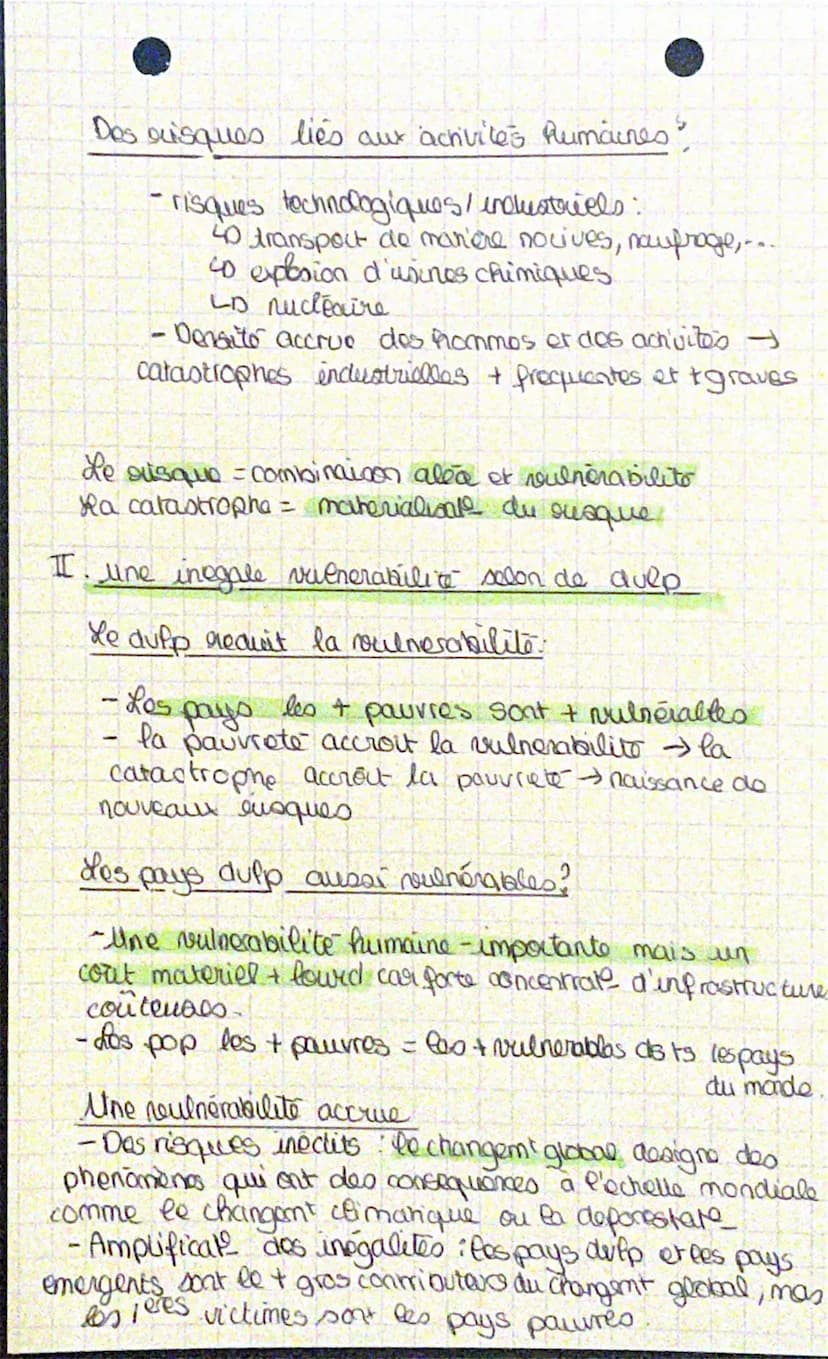 Des risques liés aux activités humaines ?
- risques technologiques / industriels :
↳ transport de manière nocives, naufrage, ...
↳ explosion d'usines chimiques
↳ nucléaire
- Densité accrue des hommes et des activités →
catastrophes industrielles + frequentes et + graves
Le risque = combinaison aléa et vulnérabilité
La catastrophe = materialisat° du risque
II. Une inegale vulnerabilité selon de dvlp
Le dvlp reduit la vulnerabilité :
- Les pays les + pauvres sont + vulnérables
- la pauvreté accroit la vulnerabilité → la
catastrophe accroît la pauvreté → naissance de
nouveaux risques
Les pays dvlp aussi vulnérables ?
- Une vulnerabilité humaine - importante mais un
coût materiel + lourd car forte concentrat° d'infrastructure
coûteuses.
- Les pop les + pauvres = les + vulnerables ds ts les pays
du monde.
Une vulnérabilité accrue
- Des risques inédits : le changemt global designe des
phenomènes qui ont des consequences à l'echelle mondiale
comme le changemt climatique ou la deforestat°
- Amplificat° des inégalités : les pays dvlp et les pays
emergents sont le + gros contributeurs du changemt global, mais
les 1ères victimes sont les pays pauvres.